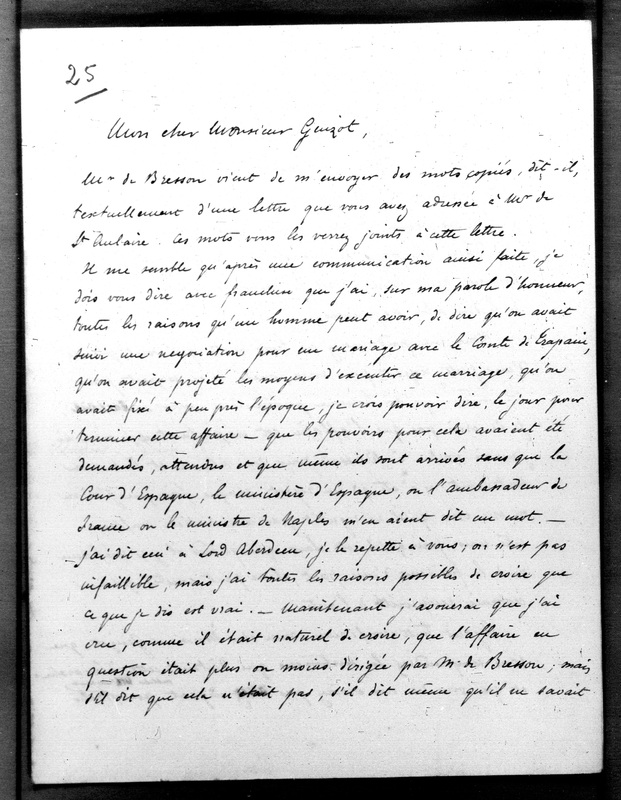 25
Mon cher Monsieur Guizot,
Mr de Bresson vient de m'envoyer des mots copiés, dit-il,
textuellement d'une lettre que vous avez adressée à Mr de
St Aulaire. Ces mots vous les verrez joints à cette lettre.
Il me semble qu'après une communication ainsi faite, je
dois vous dire avec franchise que j'ai, sur ma parole d'honneur,
toutes les raisons qu'un homme peut avoir, de dire qu'on avait
suivi une negociation pour un mariage avec le Comte de Trapani,
qu'on avait projeté les moyens d'executer ce marriage, qu'on
avait fixé à peu près l'époque, je crois pouvoir dire, le jour pour
terminer cette affaire – que les pouvoirs pour cela avaient été
demandés, attendus et que même ils sont arrivés sans que la
Cour d'Espagne, le ministère d'Espagne, ou l'ambassadeur de
France ou le ministre de Naples m'en aient dit un mot. –
j'ai dit ceci à Lord Aberdeen, je le repette à vous; on n'est pas
infaillible, mais j'ai toutes les raisons possibles de croire que
ce que je dis est vrai. – Maintenant j'avouerai que j'ai
cru, comme il était naturel de croire, que l'affaire en
question était plus ou moins dirigée par Mr de Bresson; mais
s'il dit que cela n'était pas, s'il dit même qu'il ne savait